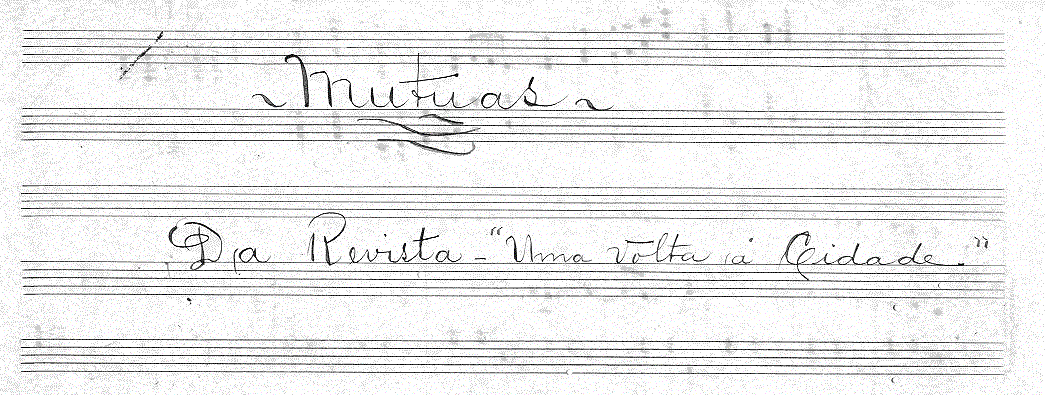 ~ Mutuas ~
Da Revista - "Uma Vôlta á Cidade."